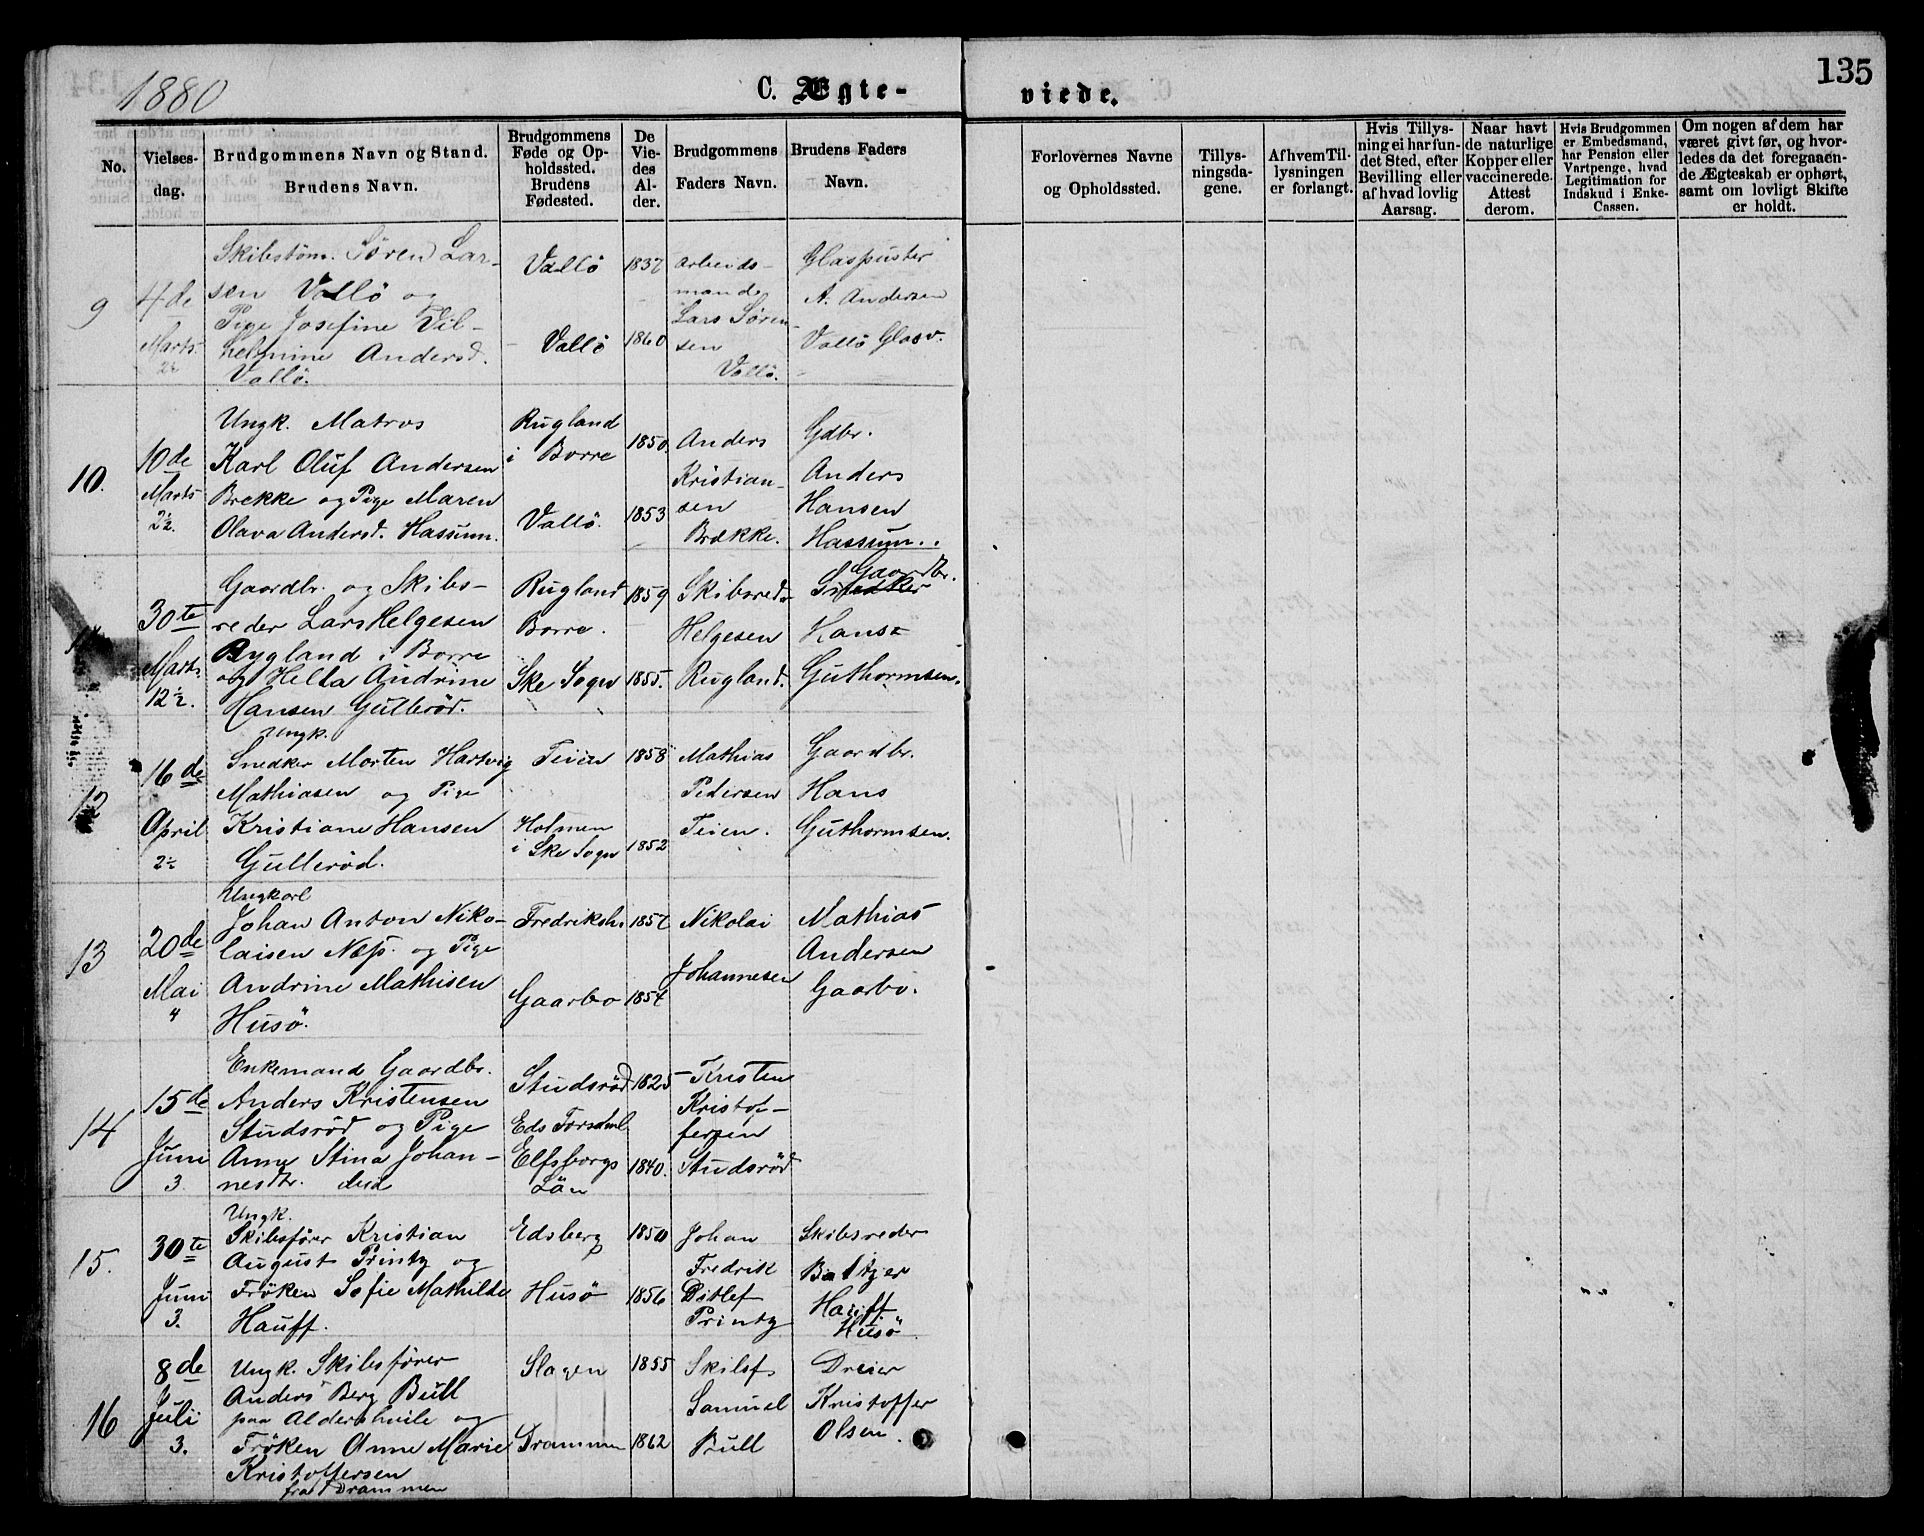 1880
C. Ægte-
viede.
135
No.
Vielses-
dag.
Brudgommens Navn og Stand.
Brudens Navn.
Brudgommens
Føde og Op-
holdssted.
Brudens
Fødested.
De
Vie-
des
Al-
der.
Brudgommens
Faders Navn.
Brudens Faders
Navn.
Forlovernes Navne
og Opholdssted.
Tillys-
ningsda-
gene.
Af hvem Til-
lysningen
er forlangt.
Hvis Tillys-
ning ei har fun-
det Sted, efter
Bevilling eller
af hvad lovlig
Aarsag.
Naar havt
de naturlige
Kopper eller
vaccinerede.
Attest
derom.
Hvis Brudgommen
er Embedsmand,
har Pension eller
Vartpenge, hvad
Legitimation for
Indskud i Enke-
Cassen.
Om nogen af dem har
været givt før, og hvor-
ledes da det foregaaen-
de Ægteskab er ophørt,
samt om lovligt Skifte
er holdt.
9
4de
Marts
2½
Skibstøm. Søren Lar-
sen Vallö og
Pige Josefine Vil-
helmine Andersd.
Vallö.
Vallö
Vallö
1837
1860
Arbeids-
mand
Lars Sören-
sen
Vallö.
Glaspuster
A. Andersen
Vallö Glasv.
10.
10de
Marts
2½.
Ungk. Matros
Karl Oluf Andersen
Brekke og Pige Maren
Olava Andersd. Hassum.
Rugland
i Borre
Vallö.
1850.
1853
Anders
Kristian-
sen
Brække.
Gdbr.
Anders
Hansen
Hassum.
11
30te
Marts
12½.
Gaardbr. og Skibs-
reder Lars Helgesen
Rygland i Borre
og Helta Andrine
Hansen Gullerød.
Rugland
Borre.
Ske Sogn
1859
1855.
Skibsreder
Helgesen
Rugland.
Gaardbr.
Hans
Guthormsen.
12
16de
April
2½
Ungk.
Snedker Morten Hartvig
Mathiasen og Pige
Kristiane Hansen
Gullerød.
Teien
Holmen
i Ske Sogn
1858
1852
Mathias
Pedersen
Teien.
Gaardbr.
Hans
Guthormsen.
13
20de
Mai
4
Ungkarl
Johan Anton Niko-
laisen Næs. og Pige
Andrine Mathisen
Husö.
Fredriksh.
Gaarbo
1857
1854
Nikolai
Johannesen
Mathias
Andersen
Gaarbo.
14
15de
Juni
3.
Enkemand Gaardbr.
Anders Kristensen
Studsröd og Pige
Anne Stina Johan-
nesdtr. ibid
Studsröd
Eds Forsaml
Elfsborgs
Län
1825
1840.
Kristen
Kristof-
fersen
Studsröd
15.
30te
Juni
3.
Ungk.
Skibsförer Kristian
August Printz og
Fröken Sofie Mathilde
Hauff.
Edsberg
Husö
1850
1856
Johan
Fredrik
Ditlef
Printz
Skibsreder
Baltzer
Hauff.
Husö
16
8de
Juli
3.
Ungk. Skibsförer
Anders Berg Bull
paa Aldershvile og
Fröken Anne Marie
Kristoffersen
fra Drammen
Slagen
Drammen
1855
1862
Skibsf.
Samuel
Bull
Dreier
Kristoffer
Olsen.